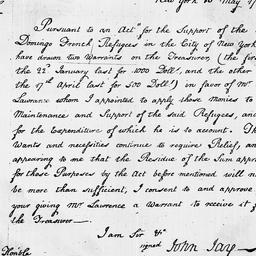 New York 16 May 17
Pursuant to an Act "for the Support of the
Domingo French Refugees in the City of New York
have drawn two Warrants on the Treasurer, (the first
the 22d January last for 1000 Dolls, and the other
the 17th April last for 500 Dolls) in favor of Mr
Lawrance whom I appointed to apply those Monies to
Maintenance and Support of the said Refugees, and
for the Expenditure of which he is to account. Th
Wants and necessities continue to require Relief, an
appearing to me that the Residue of the Sum appro
for those Purposes by the Act before mentioned will n
be more than sufficient, I consent to and approve
your giving Mr Lawrence a Warrant to receive it f
the Treasurer—
I am Sir &c
signed John Jay—
Honble